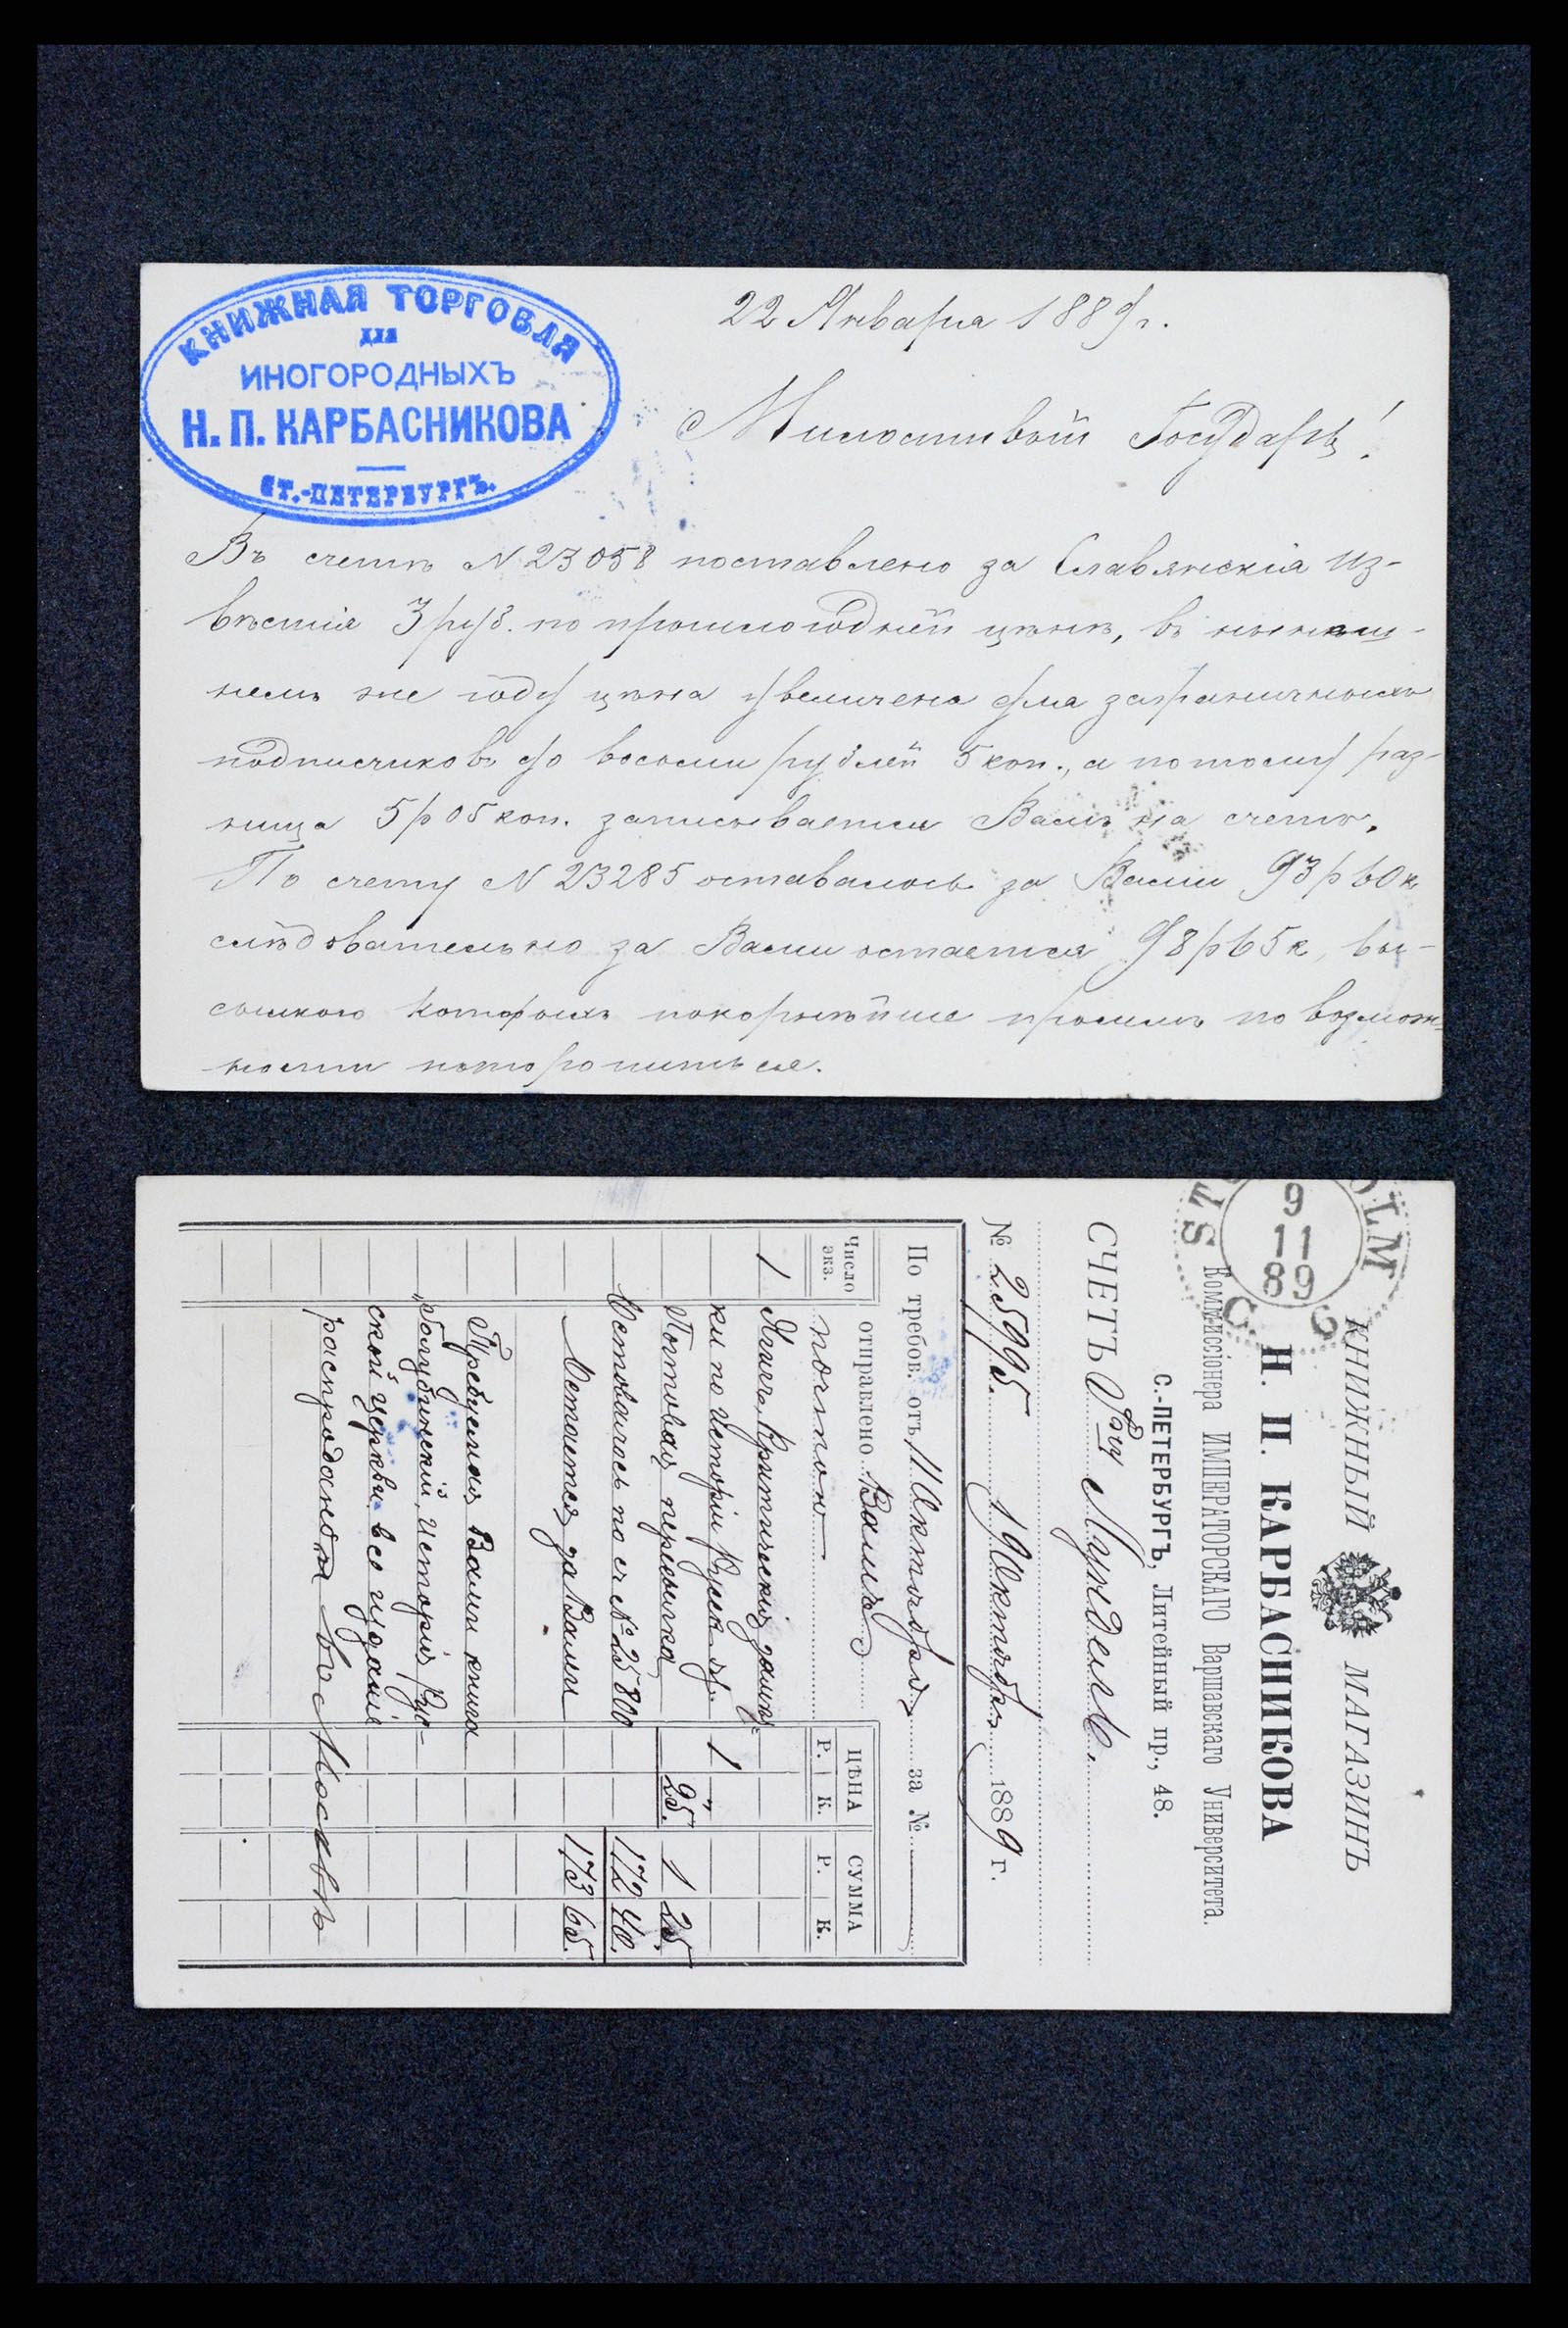 КНИЖНАЯ ТОРГОВЛЯ
для
ИНОГОРОДНЫХЪ
Н. П. КАРБАСНИКОВА
СТ.-ПЕТЕРБУРГЪ.
22 Января 1889 г.
Милостивый Государь!
Въ счетѣ N 23058 поставлено за Славянскія Из-
вѣстія 3 руб. по прошлогодней цѣнѣ, въ нынѣш-
немъ же году цѣна увеличена для заграничныхъ
подписчиковъ до восьми рублей 5 коп., а потому раз-
ница 5 р 05 коп. записывается Вамъ на счетъ.
По счету N 23285 оставалось за Вами 93 р 60 к
слѣдовательно за Вами остается 98 р 65 к, вы-
сылкою которыхъ покорнѣйше просимъ по возмож-
ности поторопиться.
STOCKHOLM
9
11
89
КНИЖНЫЙ МАГАЗИНЪ
Н. П. КАРБАСНИКОВА
Коммиссіонера ИМПЕРАТОРСКАГО Варшавскаго Университета.
С.-ПЕТЕРБУРГЪ, Литейный пр., 48.
СЧЕТЪ Мунделль.
№ 25995. 19 Октября 1889 г.
По требов. отъ 11 Октября за №
отправлено Вамъ
Число экз. почтою ЦѢНА Р. К. СУММА Р. К.
1 Ягича, Критическія замѣт-
ки по Исторіи Русск. яз. 1 "
Почтовая пересылка 25. 1 25.
Оставалось по сч № 25800 172 40.
Остается за Вами 173 65.
Требуемая Вами книга
„Голубинскій, Исторія Рус-
ской церкви" все изданіе
распродано и въ Москвѣ